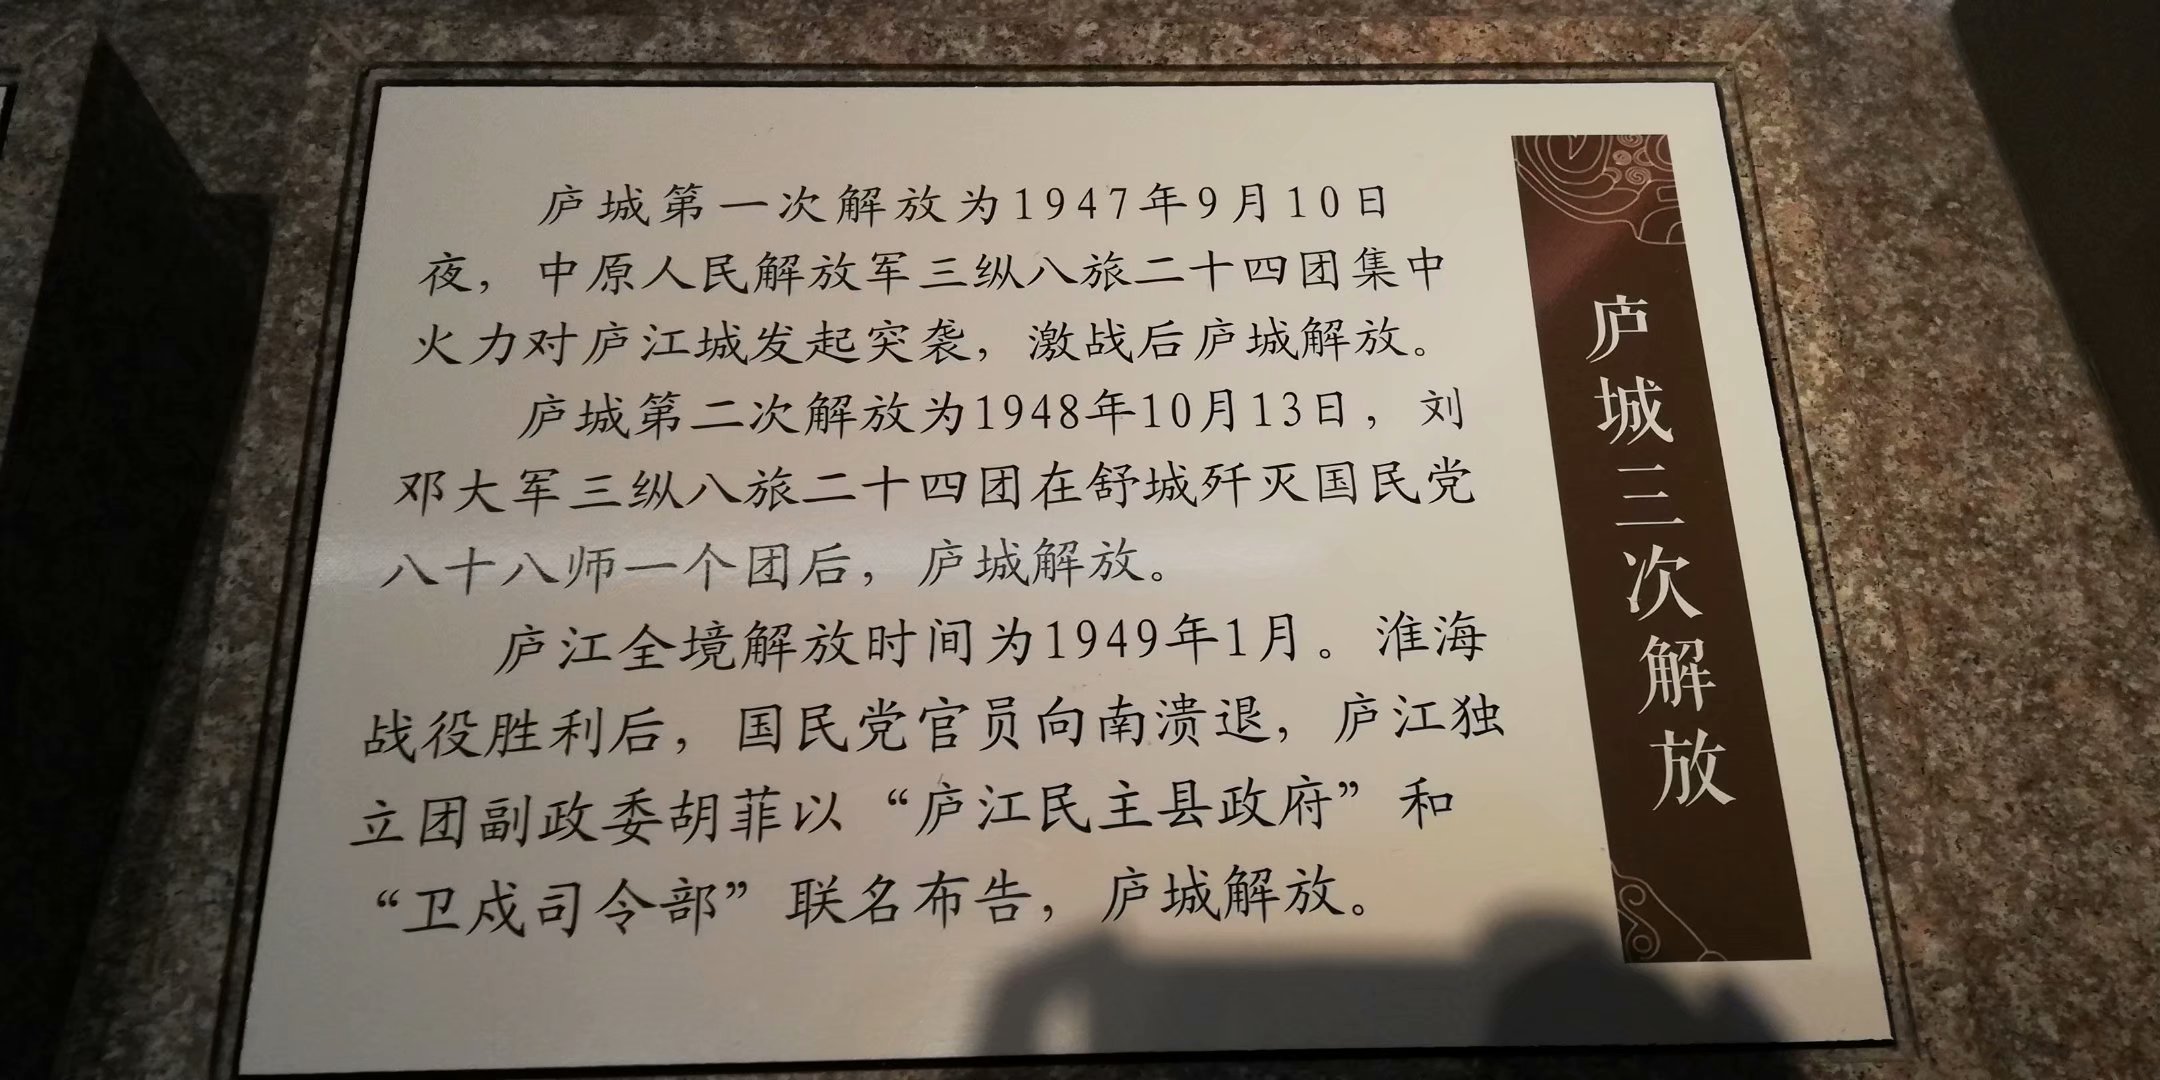 庐城三次解放
庐城第一次解放为1947年9月10日
夜，中原人民解放军三纵八旅二十四团集中
火力对庐江城发起突袭，激战后庐城解放。
庐城第二次解放为1948年10月13日，刘
邓大军三纵八旅二十四团在舒城歼灭国民党
八十八师一个团后，庐城解放。
庐江全境解放时间为1949年1月。淮海
战役胜利后，国民党官员向南溃退，庐江独
立团副政委胡菲以“庐江民主县政府”和
“卫戍司令部”联名布告，庐城解放。